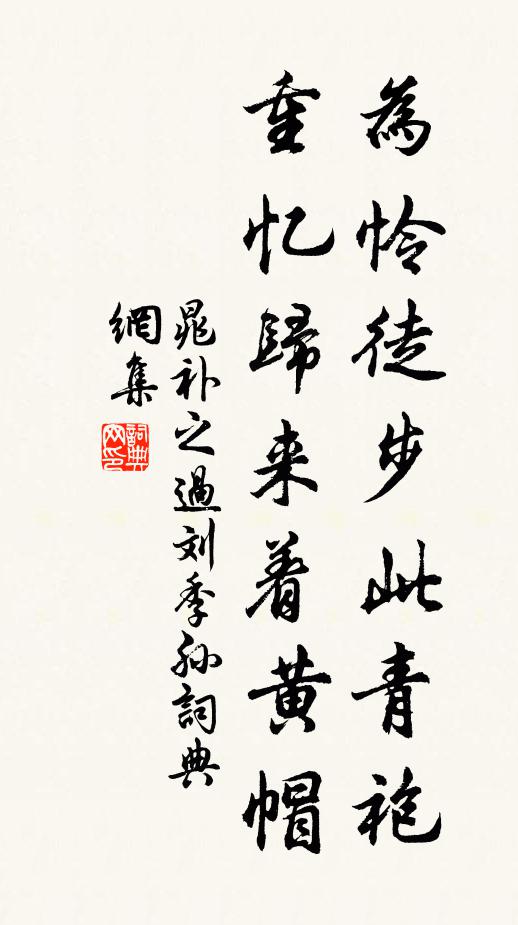 為怜徒步此青袍
重忆歸来着黄帽
晁补之過刘季孙詞典
網集
詞典網印